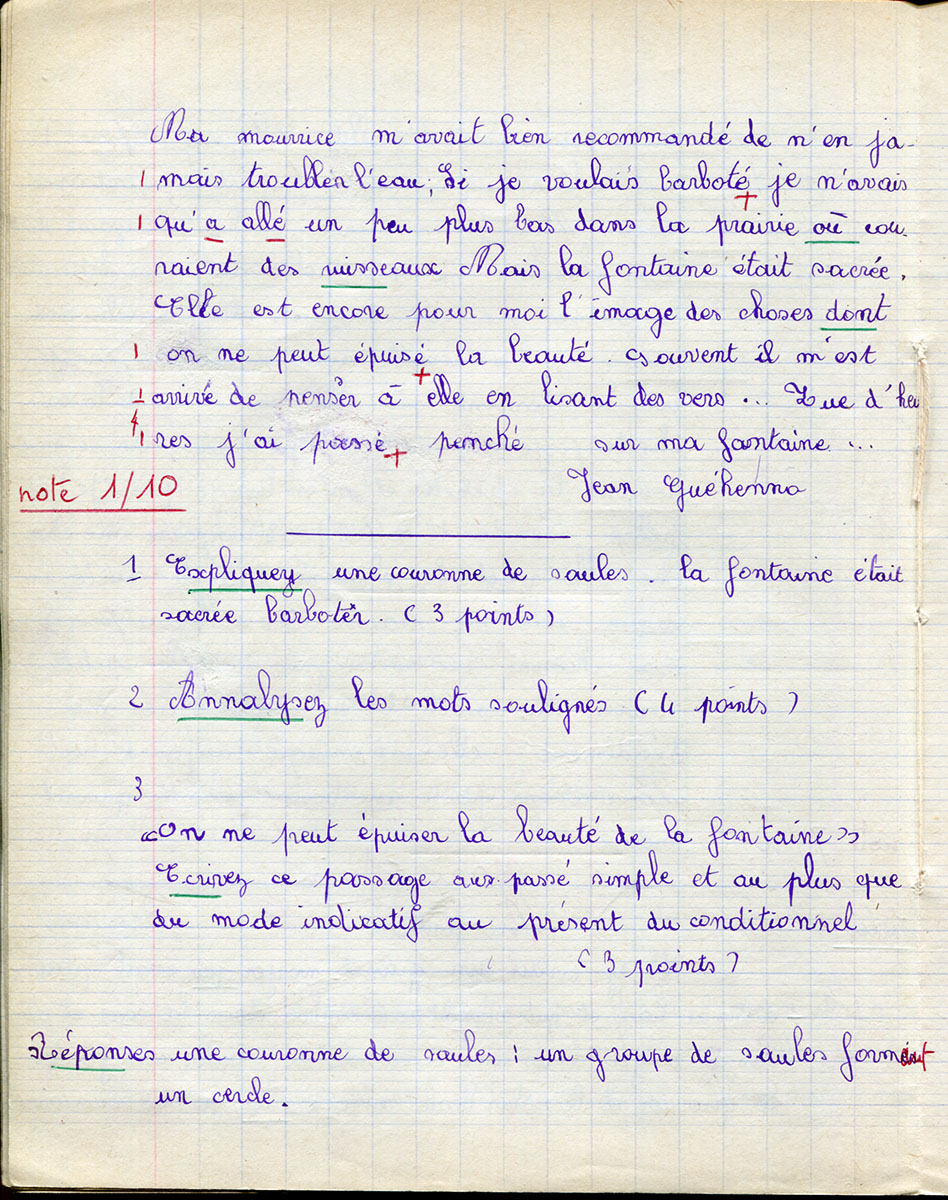 Ma mourrice m'avait bien recommandé de n'en ja-
1 mais troubler l'eau; Si je voulais barboté je n'avais
1 qu'a allé un peu plus bas dans la prairie où cou-
raient des ruisseaux Mais la fontaine était sacrée.
Elle est encore pour moi l'image des choses dont
1 on ne peut épuisé la beauté. Souvent il m'est
1 arrivé de penser à elle en lisant des vers ... Que d'heu
1 res j'ai passé penché sur ma fontaine ...
note 1/10
Jean Guéhenno
1 Expliquez une couronne de saules. la fontaine était
sacrée barboter. (3 points)
2 Annalysez les mots soulignés (4 points)
3
«On ne peut épuiser la beauté de la fontaine»
Ecrivez ce passage aux passé simple et au plus que
du mode indicatif au présent du conditionnel
(3 points)
Réponses une couronne de saules : un groupe de saules formant
un cercle.